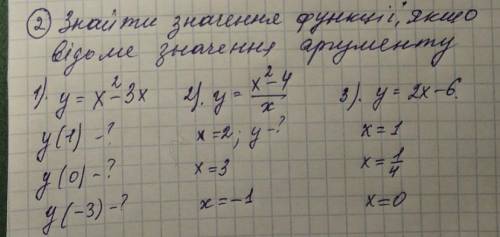 ② Знайти значення функції, якщо
відоме значення аргументу
1). y = x² - 3x   2). y = \frac{x² - 4}{x}   3). y = 2x - 6.
y(1) - ?   x = 2; y - ?   x = 1
y(0) - ?   x = 3   x = \frac{1}{4}
y(-3) - ?   x = -1   x = 0